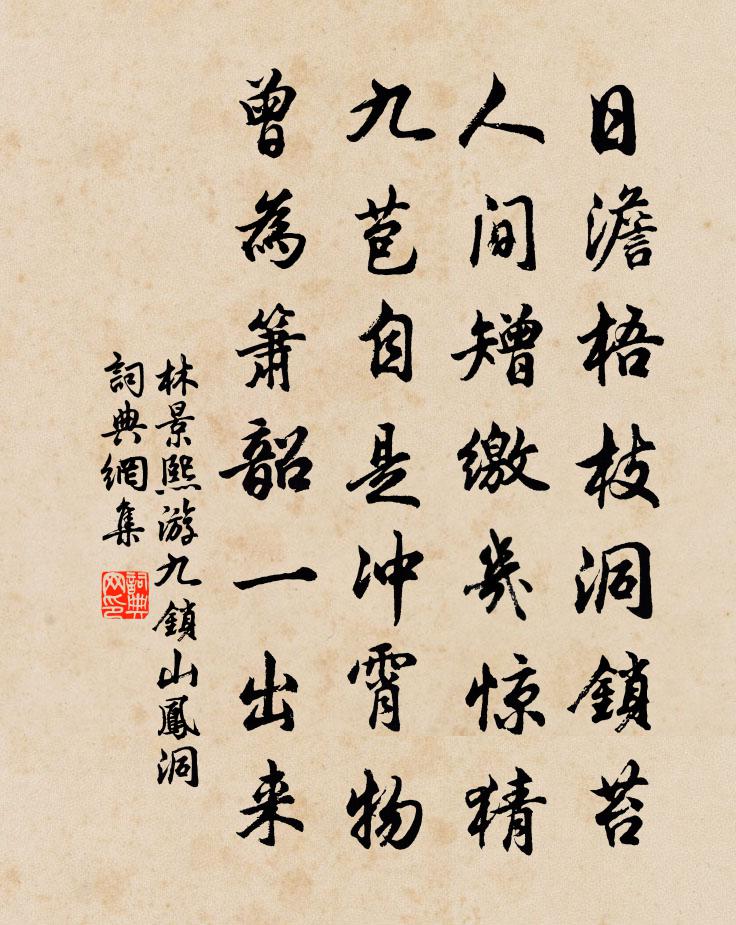 日澹梧枝洞鎖苔
人间矰缴几惊猜
九苞自是冲霄物
曾為箫韶一出来
林景熙游九鎖山鳳洞
詞典網集
詞典网印